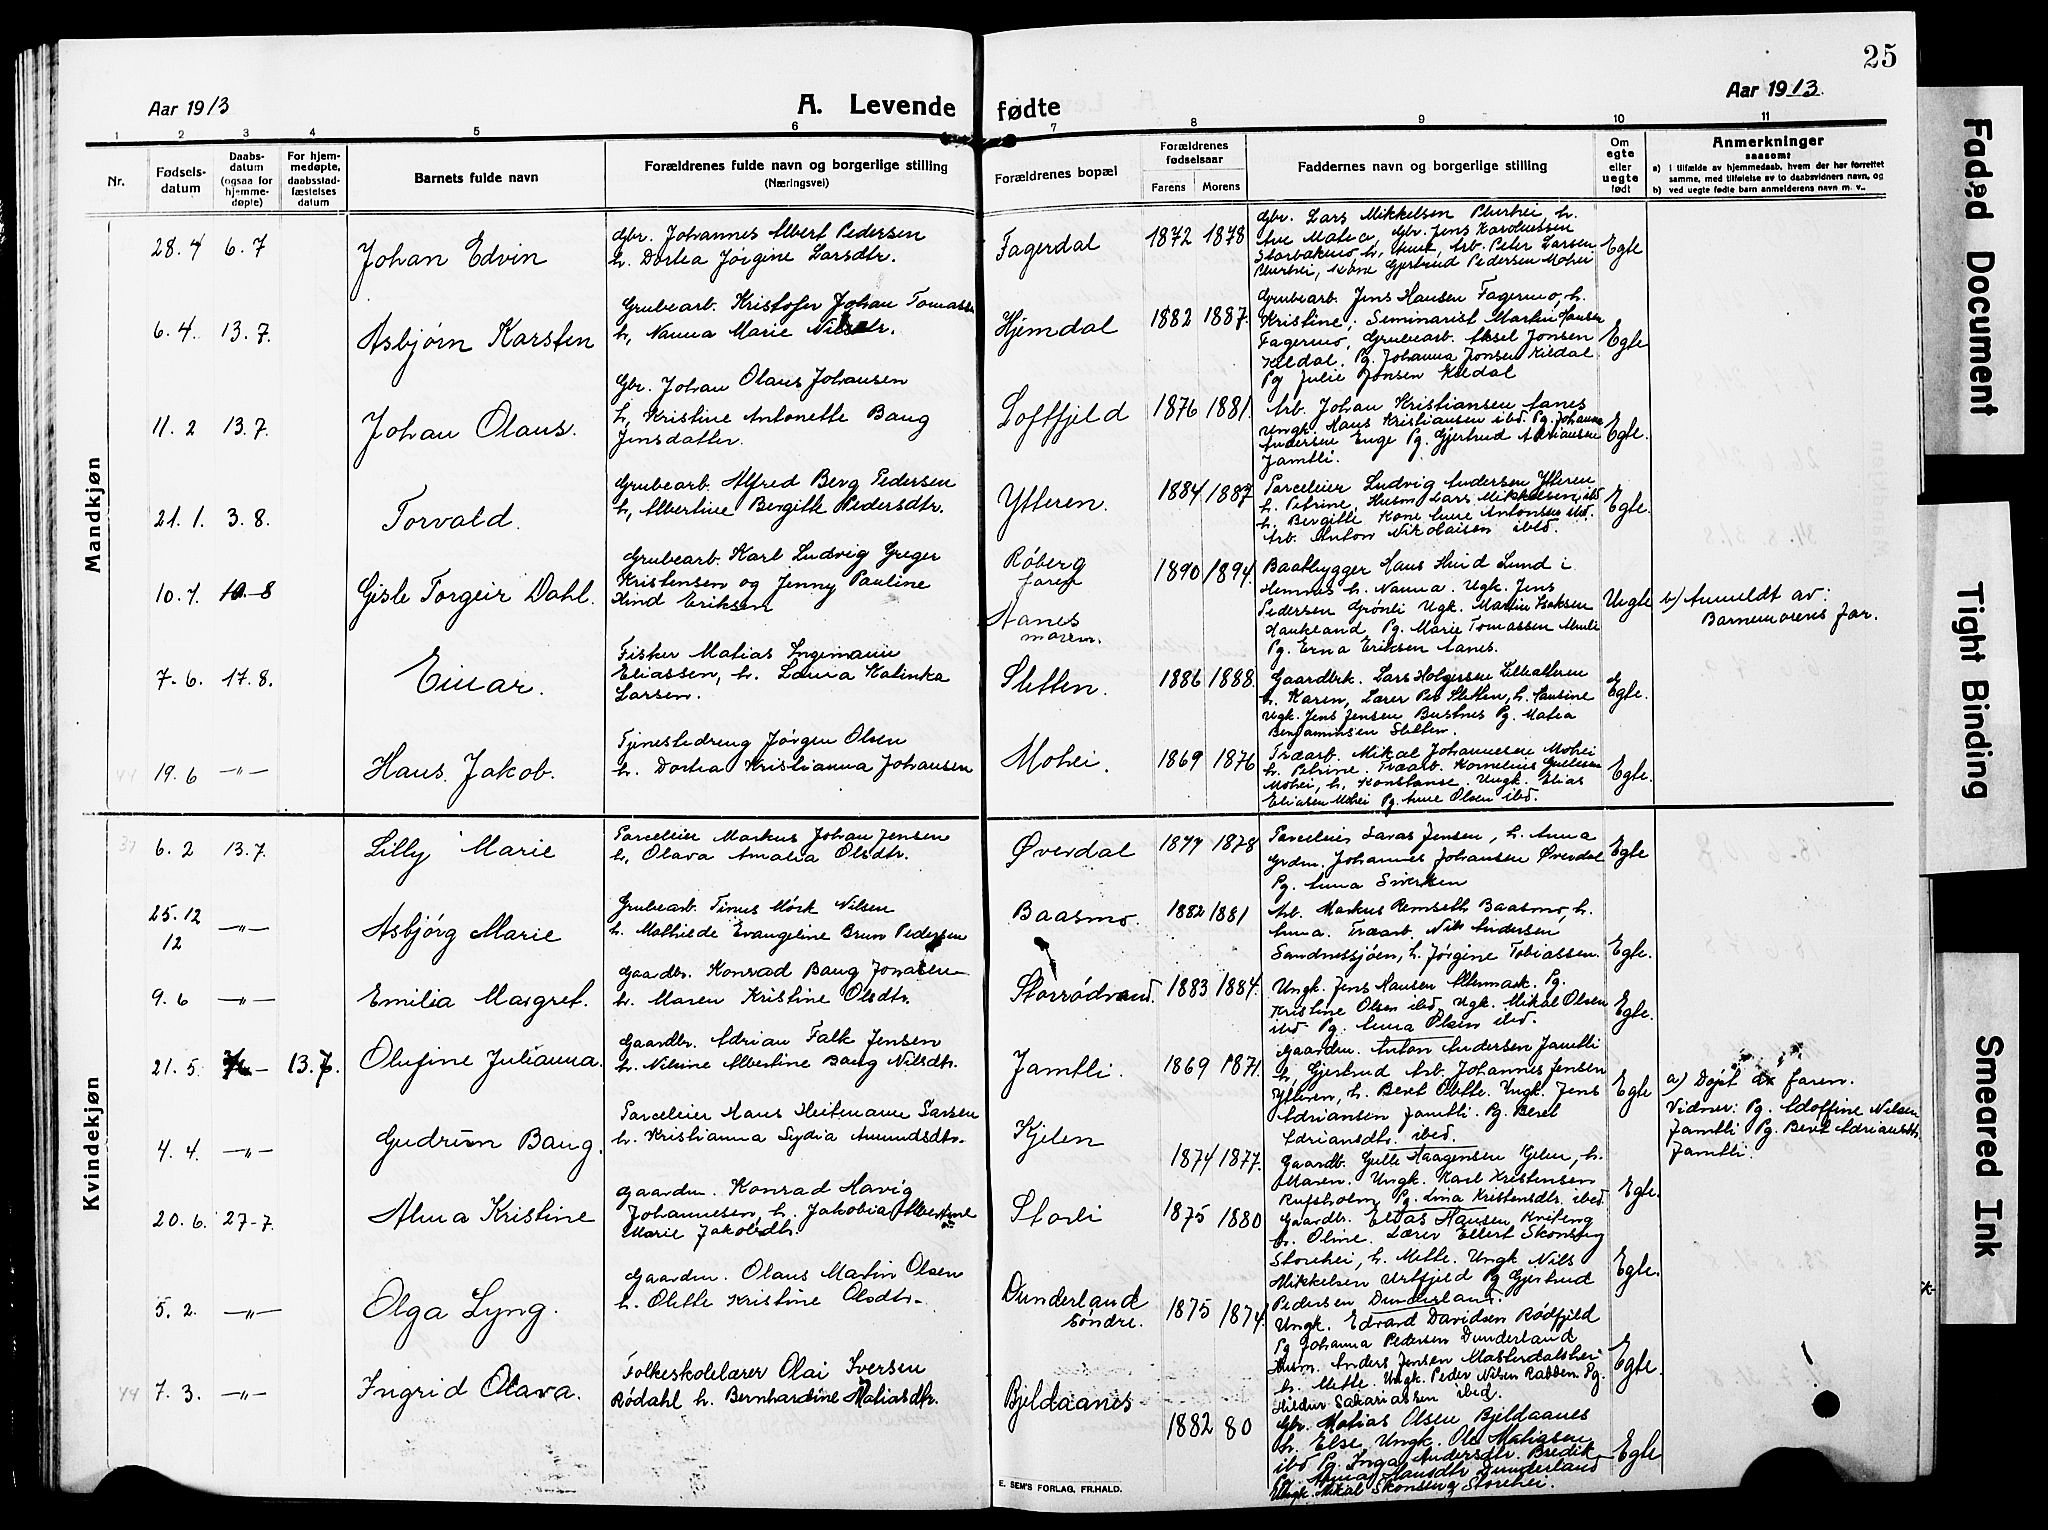 25
Aar 1913
A. Levende fødte
Aar 1913.
1 2 3 4 5 6 7 8 9 10 11
Nr.
Fødsels-
datum
Daabs-
datum
(ogsaa for
hjemme-
døpte)
For hjem-
medøpte,
daabsstad-
fæstelses
datum
Barnets fulde navn
Forældrenes fulde navn og borgerlige stilling
(Næringsvei)
Forældrenes bopæl
Forældrenes
fødselsaar
Farens Morens
Faddernes navn og borgerlige stilling
Om
egte
eller
uegte
født
Anmerkninger
saasom:
a) i tilfælde av hjemmedaab, hvem der har forrettet
samme, med tilføielse av to daabsvidners navn, og
b) ved uegte fødte barn anmelderens navn m. v.
Mandkjøn
28.4 6.7
Johan Edvin
Gbr. Johannes Albert Pedersen
h. Dortea Jørgine Larsdtr.
Fagerdal
1872 1878
Gbr. Lars Mikkelsen Plurhei, h.
Ane Matea, Gbr. Jens Karoliussen
Storbakmo h. Anne, Arb. Peter Larsen
Plurhei, Kone Gjertrud Pedersen Mohei
Egte
6.4. 13.7.
Asbjørn Karsten
Grubearb. Kristofer Johan Tomassen
h, Nanna Marie Nilsdtr.
Hjemdal
1882 1887.
Grubearb. Jens Hansen Fagermo, h.
Kristine; Seminarist Martin Hansen
Fagermo, Grubearb. Aksel Jonsen
Kildal. Pg. Johanna Jonsen Kildal
Pg Julie Jonsen Kildal
Egte
11.2 13.7.
Johan Olaus.
Gbr. Johan Olaus Johansen
h, Kristine Antonette Baug
Jensdatter.
Loftfjeld
1876 1881.
Arb. Johan Kristiansen Aanes
Ungk. Hans Kristiansen ibd. Pg. Johanna
Andersen Enge Pg. Gjertrud Adriansen
Jamtli.
Egte.
21.1. 3.8.
Torvald.
Grubearb. Alfred Berg Pedersen
h, Albertine Bergitte Pedersdtr.
Ytteren.
1884 1887
Parceleier Ludvig Andersen Ytteren
h. Petrine, Husm. Lars Mikkelsen ibd
h. Bergitte Kone Anne Antonsen ibd.
Arb. Anton Nikolaisen ibid.
Egte.
10.7. 10-8
Gisle Torgeir Dahl.
Grubearb. Karl Ludvig Greger
Kristensen og Jenny Pauline
Hind Eriksen
Røberg
faren
Aanes
moren.
1890 1894.
Baatbygger Hans Hind Lund i
Hemnes h. Nanna. Ugk. Jens
Pedersen Grønli Ugk. Martin Isaksen
Haukland, Pg. Marie Tomassen
Pg. Erna Eriksen Aanes.
Uegte
b) Anmeldt av:
Barnemorens far.
7-6. 17.8.
Einar.
Fisker Matias Ingemann
Eliassen, h. Laura Katinka
Larsen.
Sletten.
1886 1888.
Gaardbrk. Lars Holgersen Lillealteren
h. Karen, Lærer Peb Sletten, h. Hansine
Ugk. Jens Jensen Bustnes Pg. Matea
Benjaminsen Sletten.
Egte.
44 19.6 -"-
Hans. Jakob.
Tjenestedreng Jørgen Olsen
h. Dortea Kristianna Johansen
Mohei.
1869 1876
Træarb. Mikal Johannesen Mohei
h. Petrine. Træarb. Kornelius Gullesen
Mohei, h, Konstanse. Ungk. Elias
Eliasen Mohei Pg. Anne Olsen ibd.
Egte.
Kvindekjøn
37 6.2 13.7.
Lilly Marie
Parceleier Markus Johan Jensen
h, Olava Amalia Olsdtr.
Øverdal
1877 1878
Parceleier Savas Jensen, h. Anna
Grdm. Johannes Johansen Øverdal
Pg. Anna Sivertsen
Egte
25.12
12 -"-
Asbjørg Marie
Grubearb. Tinus Mørk Nilsen
h. Mathilde Evangeline Brun Pedersen
Baasmo.
1882 1881
Arb. Markus Remseth Baasmo, h.
Anna. Træarb. Nils Andersen
Sandnessjøen, h. Jørgine Tobiassen.
Egte.
9.6 -"-
Emilia Margret.
Gaardbr. Konrad Baug Jonasen
h. Maren Kristine Olsdtr.
Storrødvand.
1883 1884.
Ungk. Jens Hansen Altermark. Pg.
Kristine Olsen ibd. Ugk. Mikal Olsen
ibd Pg. Anna Olsen ibd.
Egte.
21.5. 13.7.
Olufine Julianna.
Gaardbr. Adrian Falk Jensen
h. Nilsine Albertine Baug Nilsdtr.
Jamtli.
1869 1871.
Gaardm. Anton Andersen Jamtli
h, Gjertrud Arb. Johannes Jensen
Ytteren, h. Beret Olette. Ungk. Jens
Adriansen Jamtli. Pg. Beret
Adriansdtr. ibed.
Egte
a) Døpt av faren.
Vidner: Pg. Adolfine Nilsen
Jamtli Pg. Beret Adriansdtr.
Jamtli.
4.4. -"-
Gudrun Baug.
Parceleier Hans Heitmann Larsen
h. Kristianna Lydia Amundsdtr.
Kjelen
1874 1877.
Gaardb. Gulle Haagensen Kjelen, h.
Maren. Ungk. Karl Kristensen
Rufsholm Pg. Lina Kristensdtr. ibed.
Egte.
20.6. 27-7.
Alma Kristine
Gaardm. Konrad Mavig
Johannesen, h. Jakobia Albertine
Marie Jakobsdtr.
Storli
1875 1880
Gaardbr. Elias Hansen Kviteng
h. Oline. Lærer Ellert Skonseng
Storehei, h. Mette. Ungk Nils
Mikkelsen Urtfjeld Pg Gjertrud
Pedersen Dunderland.
Egte.
5.2. -"-
Olga Lyng.
Gaardm. Olaus Martin Olsen
h. Olette Kristine Olsdtr.
Dunderland
Søndre.
1875 1874.
Ungk. Edvard Davidsen Rødfjeld
Pg Johanna Pedersen Dunderland
Husm. Anders Jensen Masterdalshei
h. Mette. Ungk. Peder Nilsen Rabben. Pg.
Hildur Sakariassen ibed.
Egte.
44 7.3. -"-
Ingrid Olava.
Folkeskolelærer Olai Iversen
Rødahl h. Bernhardine Matiasdtr.
Bjeldaanes
1882 80
Gbr. Matias Olsen Bjeldaanes
h. Else, Ungk. Ole Matiasen
ibd Pg. Inga Andersdtr. Bredik
Pg. Anna Hansdtr Dunderland
Ungk. Mikal Skonseng Storehei.
Egte
E. SEM'S FORLAG, FR.HALD.
Faded Document
Tight Binding
Smeared Ink